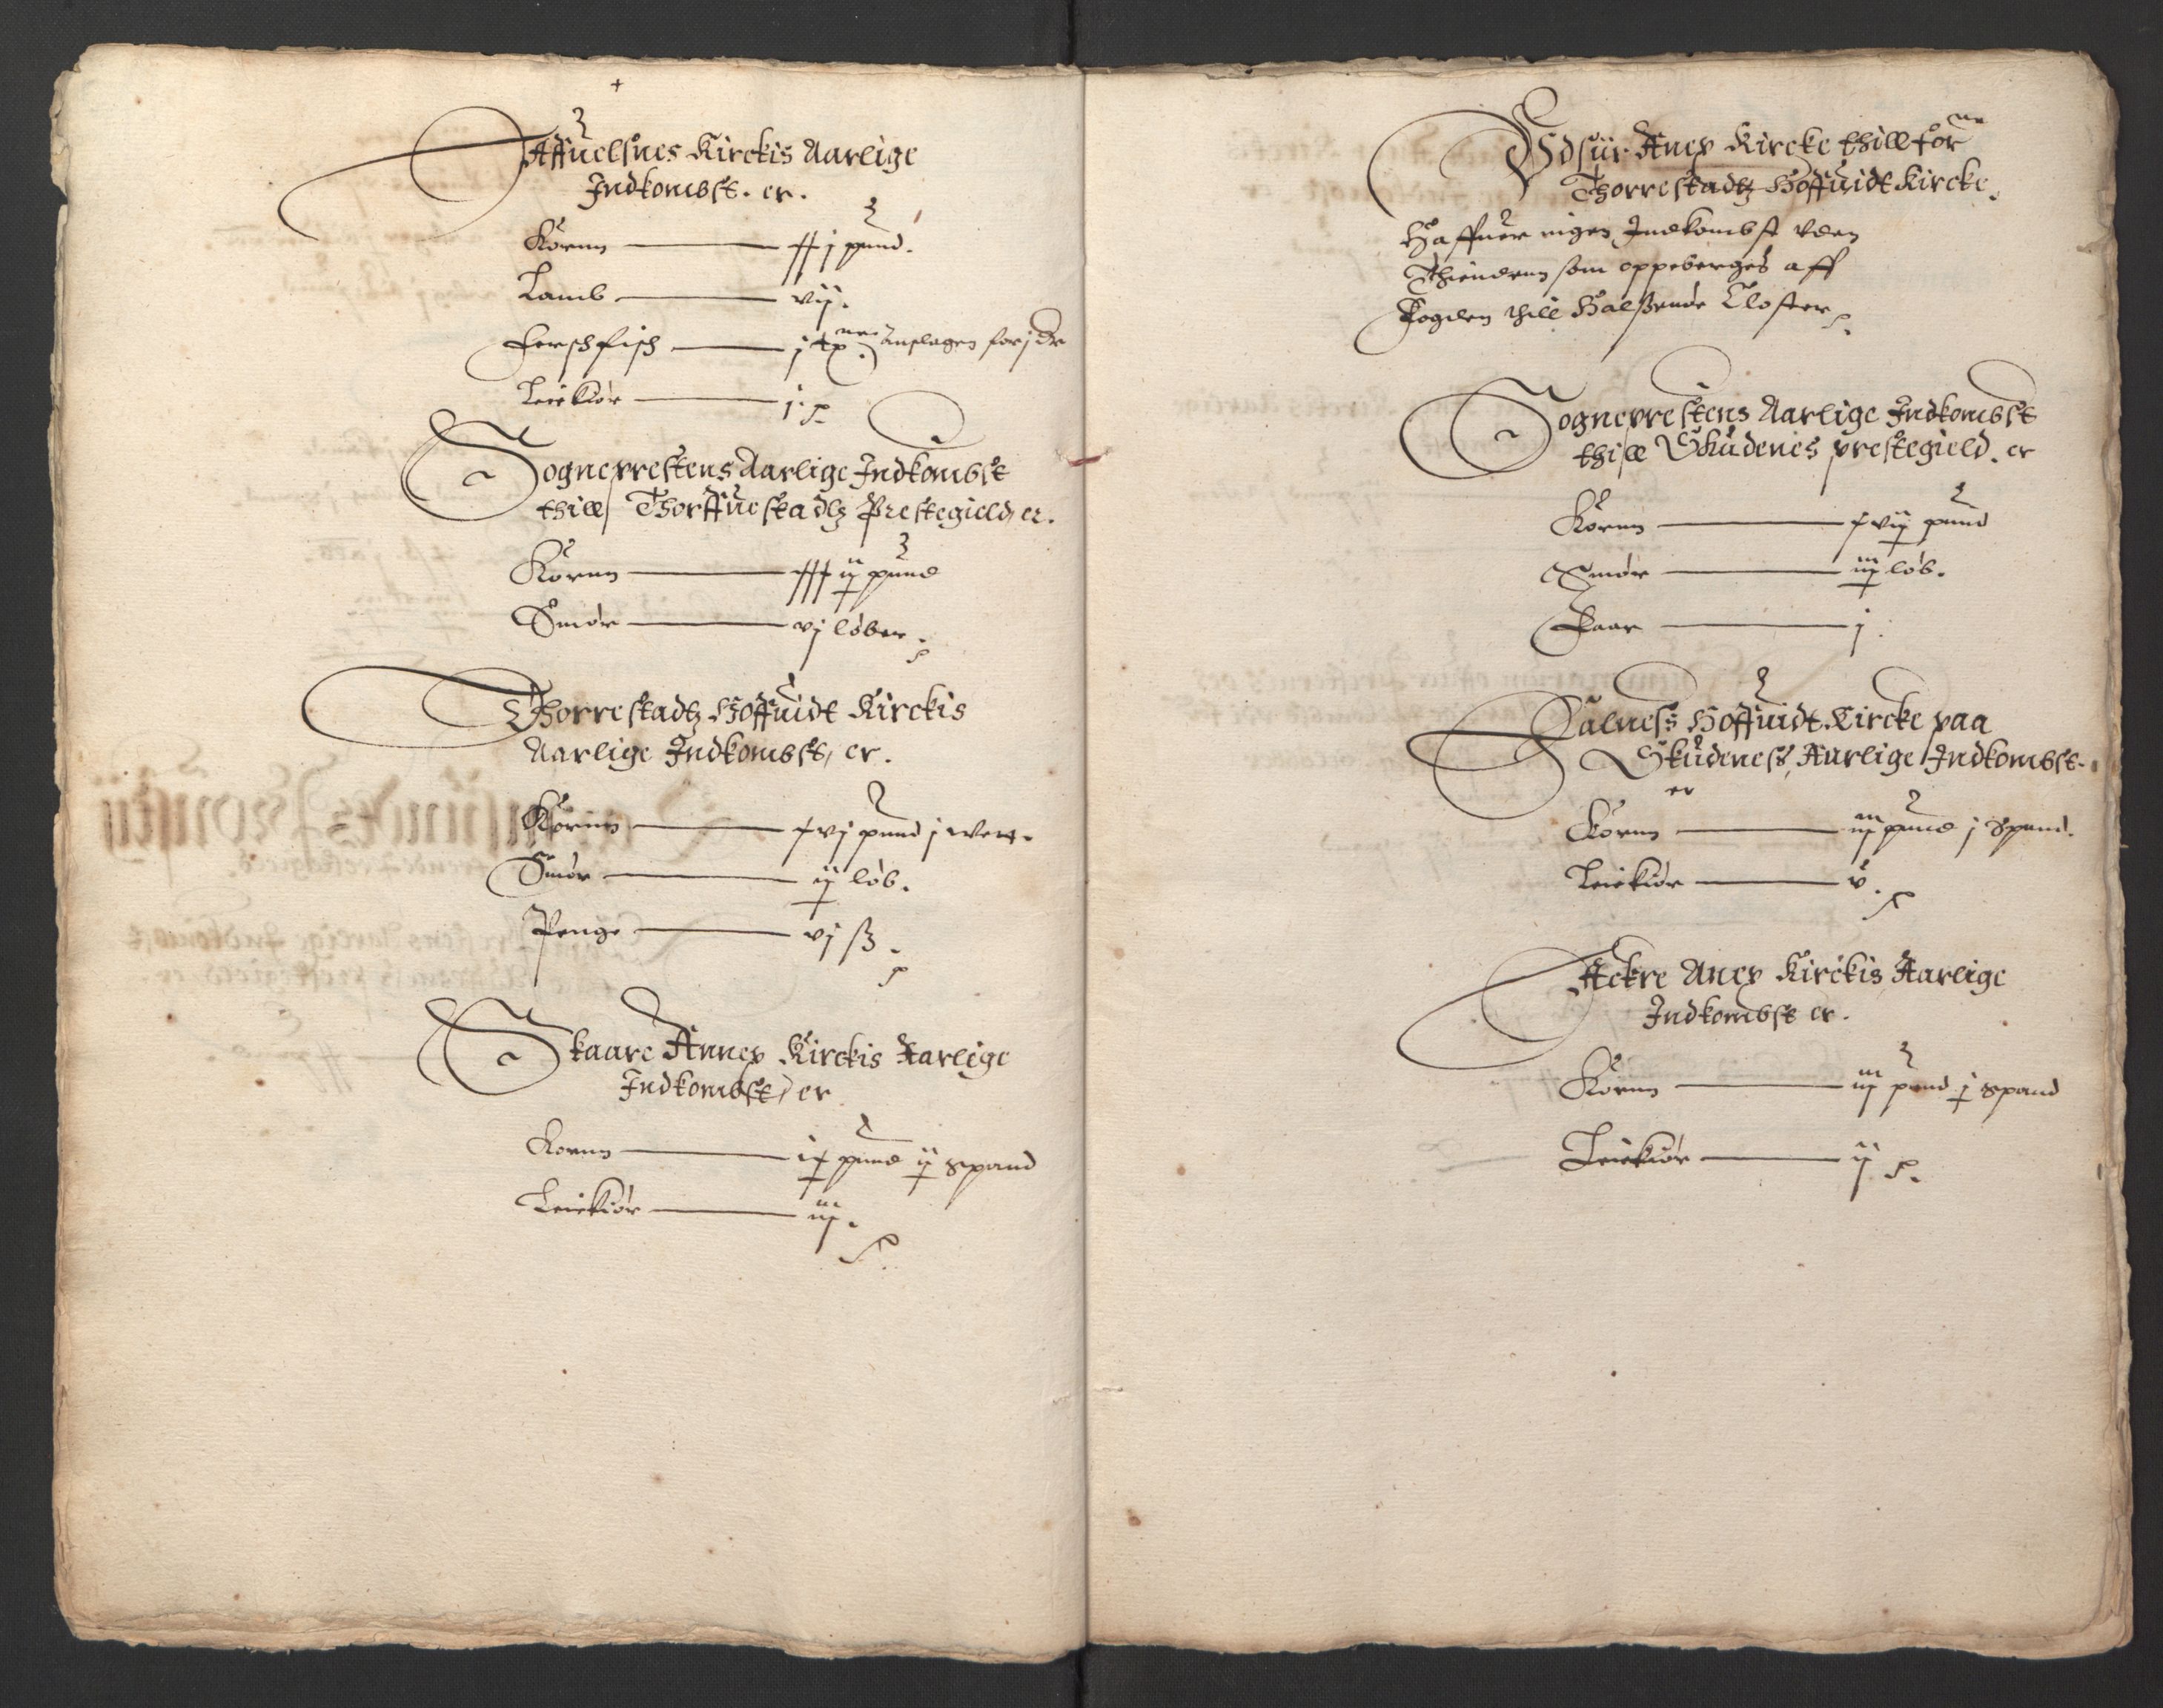 Affuelsnes Kirckis Aarlige
Indkombst. er.
Kornn — xxj pund.
Lamb — vij.
Ferschfisch — j tp ne Anslagen for j dr
Leiekiør — j.
Sogneprestens Aarlige Indkombst
thill Thorffuestadtz Prestegield, er.
Kornn — xxxij pund
Smør — vj løber.
Thorrestadtz Hoffuidt Kirckis
Aarlige Indkombst, er.
Kornn — xvj pund j wett.
Smør — ij løb.
Penge — vj ß.
Skaare Annex Kirckis Aarlige
Indkombst, er
Kornn — ix pund ij spand
Leiekiør — iiij.
Vdsiir Anex Kircke thill forne
Thorrestadtz Hoffuidt Kircke.
Haffuer ingen Indkombst vden
Thiendenn som oppeberges aff
Fogden thill Halssnøe Closter.
Sogneprestens Aarlige Indkombst
thill Skudenes prestegield. er
Kornn — xvij pund
Smør — iiij løb.
Faar — j.
Falness Hoffuidt Kircke paa
Skudeness, Aarlige Indkombst.
er
Kornn — iiij pund j Spand.
Leiekiør — v.
Ackre Anex Kirckis Aarlige
Indkombst er.
Kornn — iiij pund j spand
Leiekiør — ij